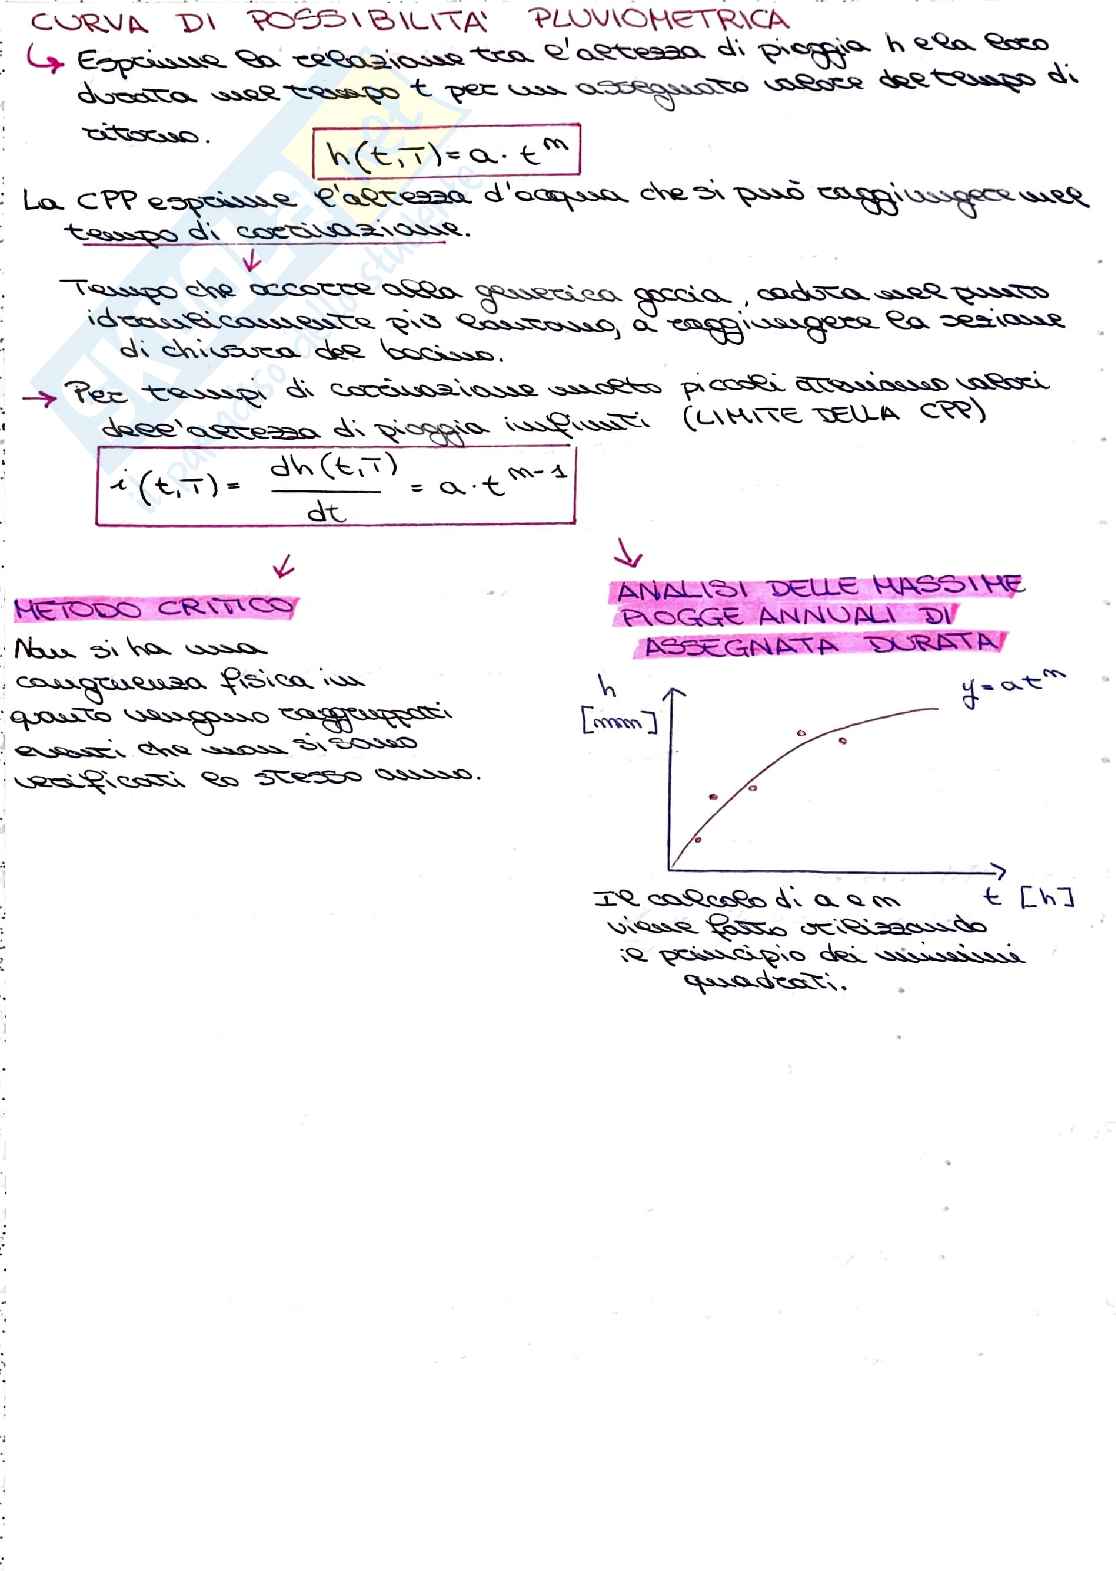 CURVA DI POSSIBILITA' PLUVIOMETRICA
Esprime la relazione tra l'altezza di pioggia h e la loro
durata nel tempo t per un assegnato valore del tempo di
ritorno.
h(t,T) = a · t^n
La CPP esprime l'altezza d'acqua che si può raggiungere nel
tempo di corrivazione.
Tempo che occorre alla generica goccia, caduta nel punto
idraulicamente più lontano, a raggiungere la sezione
di chiusura del bacino.
→ Per tempi di corrivazione molto piccoli otteniamo valori
dell'altezza di pioggia infiniti (LIMITE DELLA CPP)
i(t,T) = dh(t,T)/dt = a · t^n-1
METODO CRITICO
Non si ha una
congruenza fisica in
quanto vengono raggruppati
eventi che non si sono
verificati lo stesso anno.
ANALISI DELLE MASSIME
PIOGGE ANNUALI DI
ASSEGNATA DURATA
h
[mm]
y = at^n
t [h]
Il calcolo di a e n
viene fatto utilizzando
il principio dei minimi
quadrati.
SKUOLA.net
il paradiso dello studente